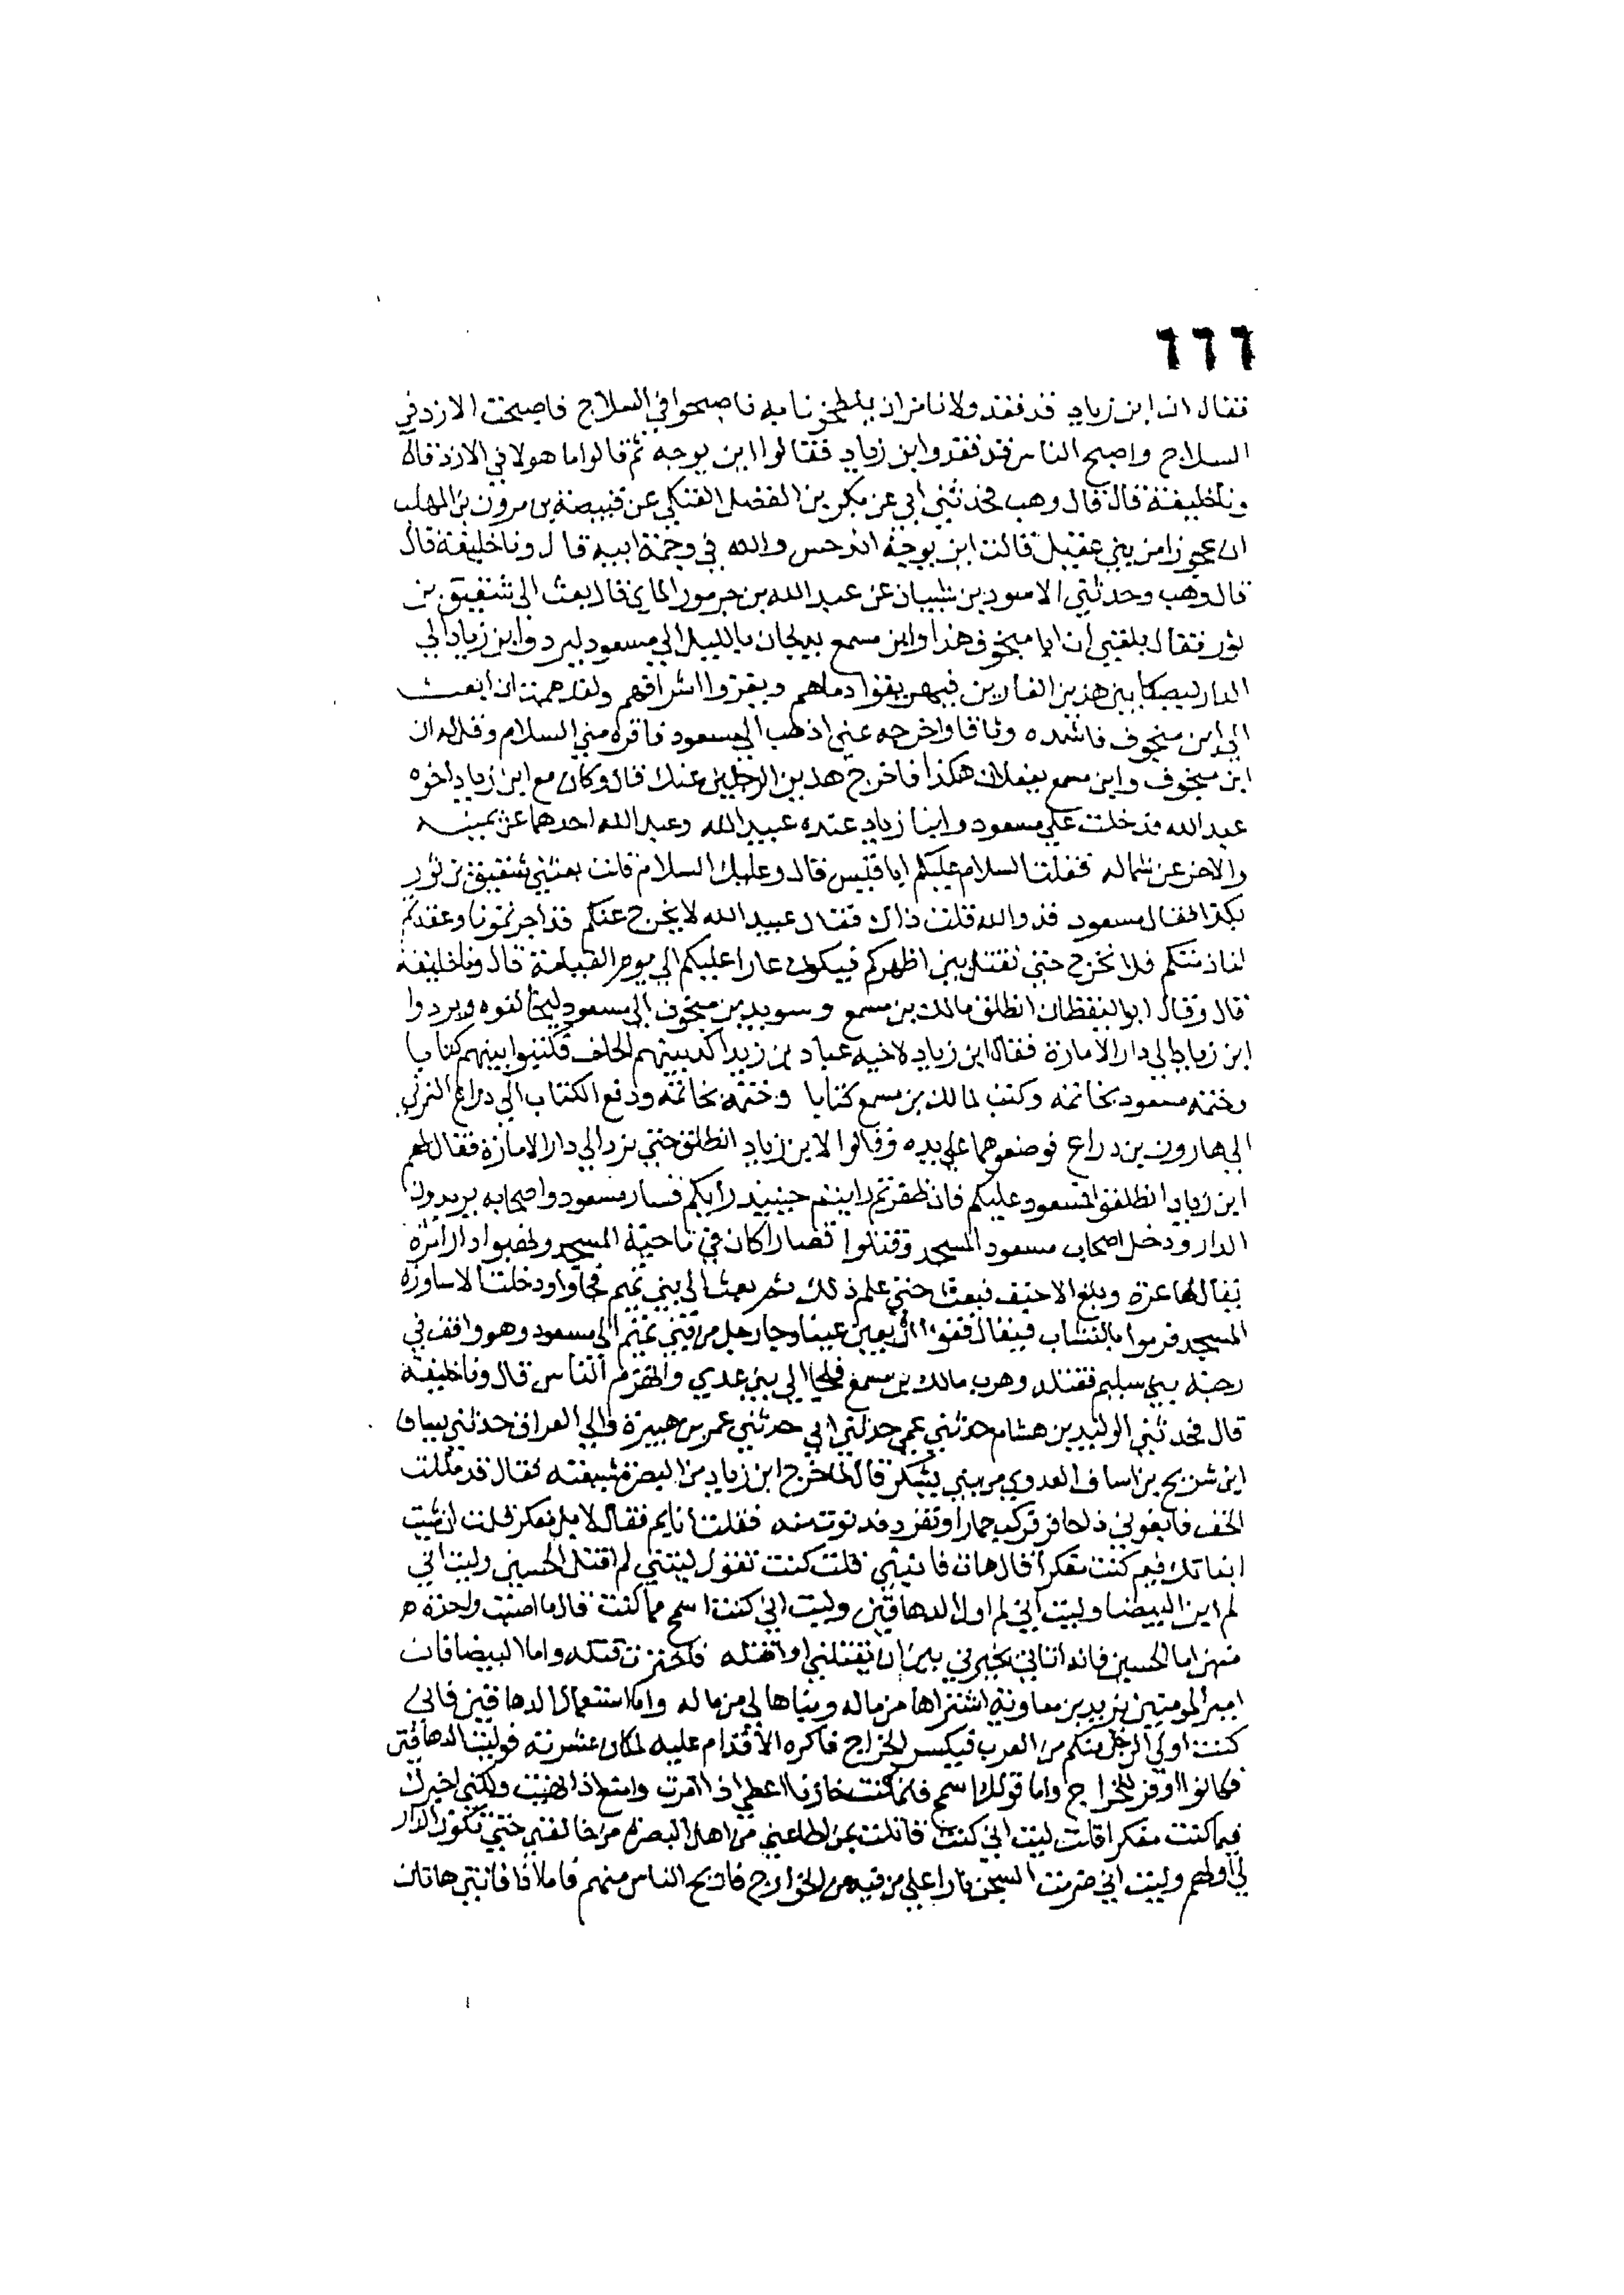 ٦٦٦
فقال ان ابن زياد قد فقد ولا نامن ان يلطخونا به فاصبحوا في السلاح فاصبحت الازد في
السلاح واصبح الناس قد فقدوا ابن زياد فقالوا اين توجه ثم قالوا ما هو الا في الازد قال
ونا خليفة قال قال وهب فحدثني ابي عن بكر بن الفضل العتكي عن قبيصة بن مرون بن المهلب
ان عجوزا من بني عقيل قالت اين توجه اندحس والله في وجمة ابيه قال ونا خليفة قال
قال وهب وحدثني الاسود بن شيبان عن عبد الله بن جرمور المازي قال بعث الي شقيق بن
ثور فقال بلغني ان ابا منجوف هذا وابن مسمع يدلجان بالليل الي مسعود ليردوا ابن زياد الي
الدار ليصكا بين هذين الغارين فيهريقوا دماهم ويعزوا اشرافهم ولقد هممت ان ابعث
الي ابن منجوف فاشده وثاقا واخرجه عني اذهب الي مسعود فاقره مني السلام وقل له ان
ابن منجوف وابن مسمع يفعلان هكذا فاخرج هذين الرجلين عنك قال وكان مع ابن زياد اخوه
عبد الله فدخلت علي مسعود وابنا زياد عنده عبيد الله وعبد الله احدهما عن يمينه
والاخر عن شماله فقلت السلام عليكم ابا قيس قال وعليك السلام قلت بعثني شقيق بن ثور
بكذا فقال مسعود قد والله قلت ذاك فقال عبيد الله لا نخرج عنكم قد اجرتمونا وعقدتم
لنا ذمتكم فلا نخرج حتي نقتل بين اظهركم فيكون عارا عليكم الي يوم القيامة قال ونا خليفة
قال وقال ابو اليقظان انطلق مالك بن مسمع وسويد بن منجوف الي مسعود ليحالفوه ويردوا
ابن زياد الي دار الامارة فقال ابن زياد لاخيه عباد بن زياد اكد بينهم الحلف فكتبوا بينهم كتابا
وختمه مسعود بخاتمه وكتب لمالك بن مسمع كتابا وختمه بخاتمه ودفع الكتاب الي دراع النمري
الي هارون بن دراع فوضعوهما علي يده وقالوا لابن زياد انطلق حتي نردك الي دار الامارة فقال لهم
ابن زياد انطلقوا مسعود عليكم فان ظفرتم رايتم حينيذ رايكم فسار مسعود واصحابه يريدون
الدار ودخل اصحاب مسعود المسجد وقتلوا قصارا كان في ناحية المسجد ونهبوا دار امراة
يقال لها عزة وبلغ الاحنف فبعث حتي علم ذلك ثم بعث الي بني تميم فجاوا ودخلت الاساورة
المسجد فرموا بالنشاب فيقال فقوا اربعين عينا وجا رجل من بني تميم الي مسعود وهو واقف في
رحبة بني سليم فقتله وهرب مالك بن مسمع فلجا الي بني عدي وانهزم الناس قال ونا خليفة
قال فحدثني الوليد بن هشام حدثني عمي حدثني ابي حدثني عمر بن هبيرة والي العراق حدثني يساف
ابن شريح بن اساف العدوي من بني يشكر قال لما خرج ابن زياد من البصرة شيعته فقال قد مللت
الخف فابغوني ذا حافر فركب حمارا وتفرد فدنوت منه فقلت انايم فقال لا بل مفكر قلت ان شيت
انباتك فيم كنت مفكرا قال هات فانبيني قلت كنت تقول ليتني لم اقتل الحسين وليت اني
لم ابن البيضا وليت اني لم اول الدهاقين وليت اني كنت اسمح مما كنت قال ما اصبت واحدة
منهن اما الحسين فانه اتاني يخيرني بين ان يقتلني او اقتله فاخترت قتله واما البيضا فان
امير المومنين يزيد بن معاوية اشتراها من ماله وبناها لي من ماله واما استعمالي الدهاقين فاني
كنت اولي الرجل منكم من العرب فيكسر الخراج فاكره الاقدام عليه لمكان عشرته فوليت الدهاقين
فكانوا اوفر للخراج واما قولك اسمح فانما كنت خازنا اعطي اذا امرت وامنع اذا نهيت ولكني اخبرك
فيما كنت مفكرا قلت ليت اني كنت قاتلت بمن اطاعني من اهل البصرة من خالفني حتي تكون الدار
لي او لهم وليت اني ضرمت السجن نارا علي من فيه من الخوارج فاريح الناس منهم فاملا فاتتني هاتان